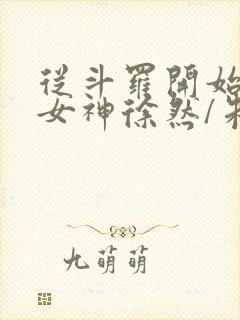 從斗羅開始
女神徐然/朱
九萌萌